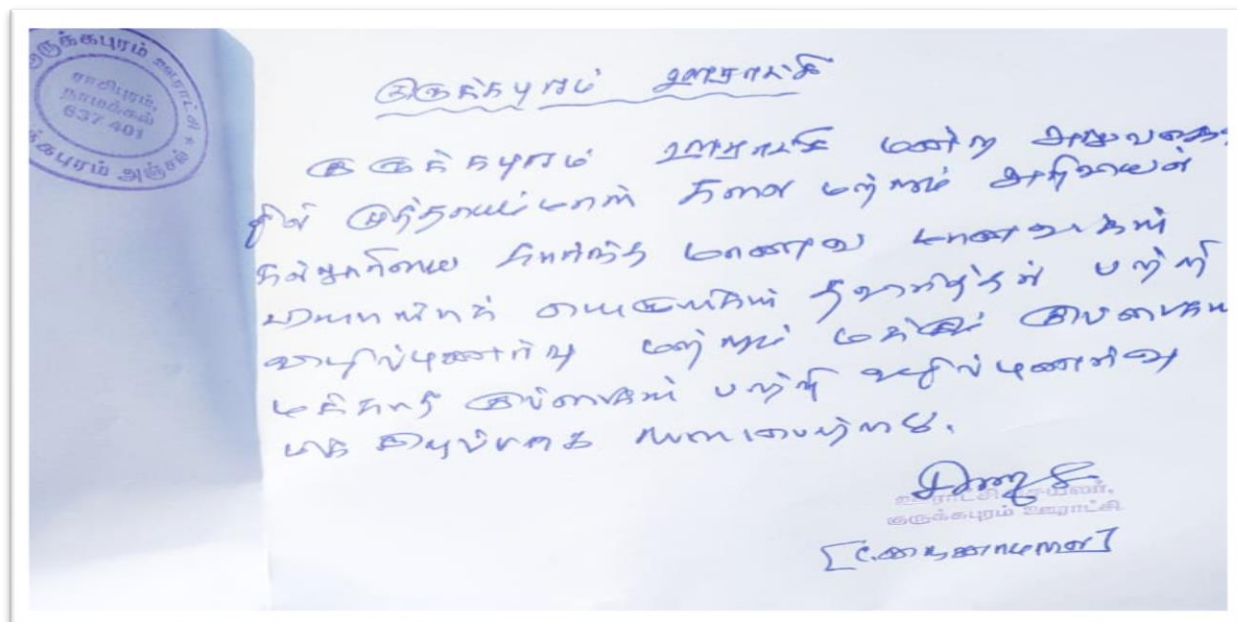 குருக்கபுரம் ஊராட்சி
இராசிபுரம்,
நாமக்கல்
637 401
குருக்கபுரம் அஞ்சல்
குருக்கபுரம் ஊராட்சி
குருக்கபுரம் ஊராட்சி மன்ற அலுவலகத்
தில் முத்தாயம்மாள் கலை மற்றும் அறிவியல்
கல்லூரியை சார்ந்த மாணவ மாணவர்கள்
பற்றி
விழிப்புணர்வு மற்றும் மக்கும் குப்பைகள்
மக்காத குப்பைகள் பற்றி விழிப்புணர்வு
மிக சிறப்பாக நடைபெற்றது.
ஊராட்சி செயலர்,
குருக்கபுரம் ஊராட்சி